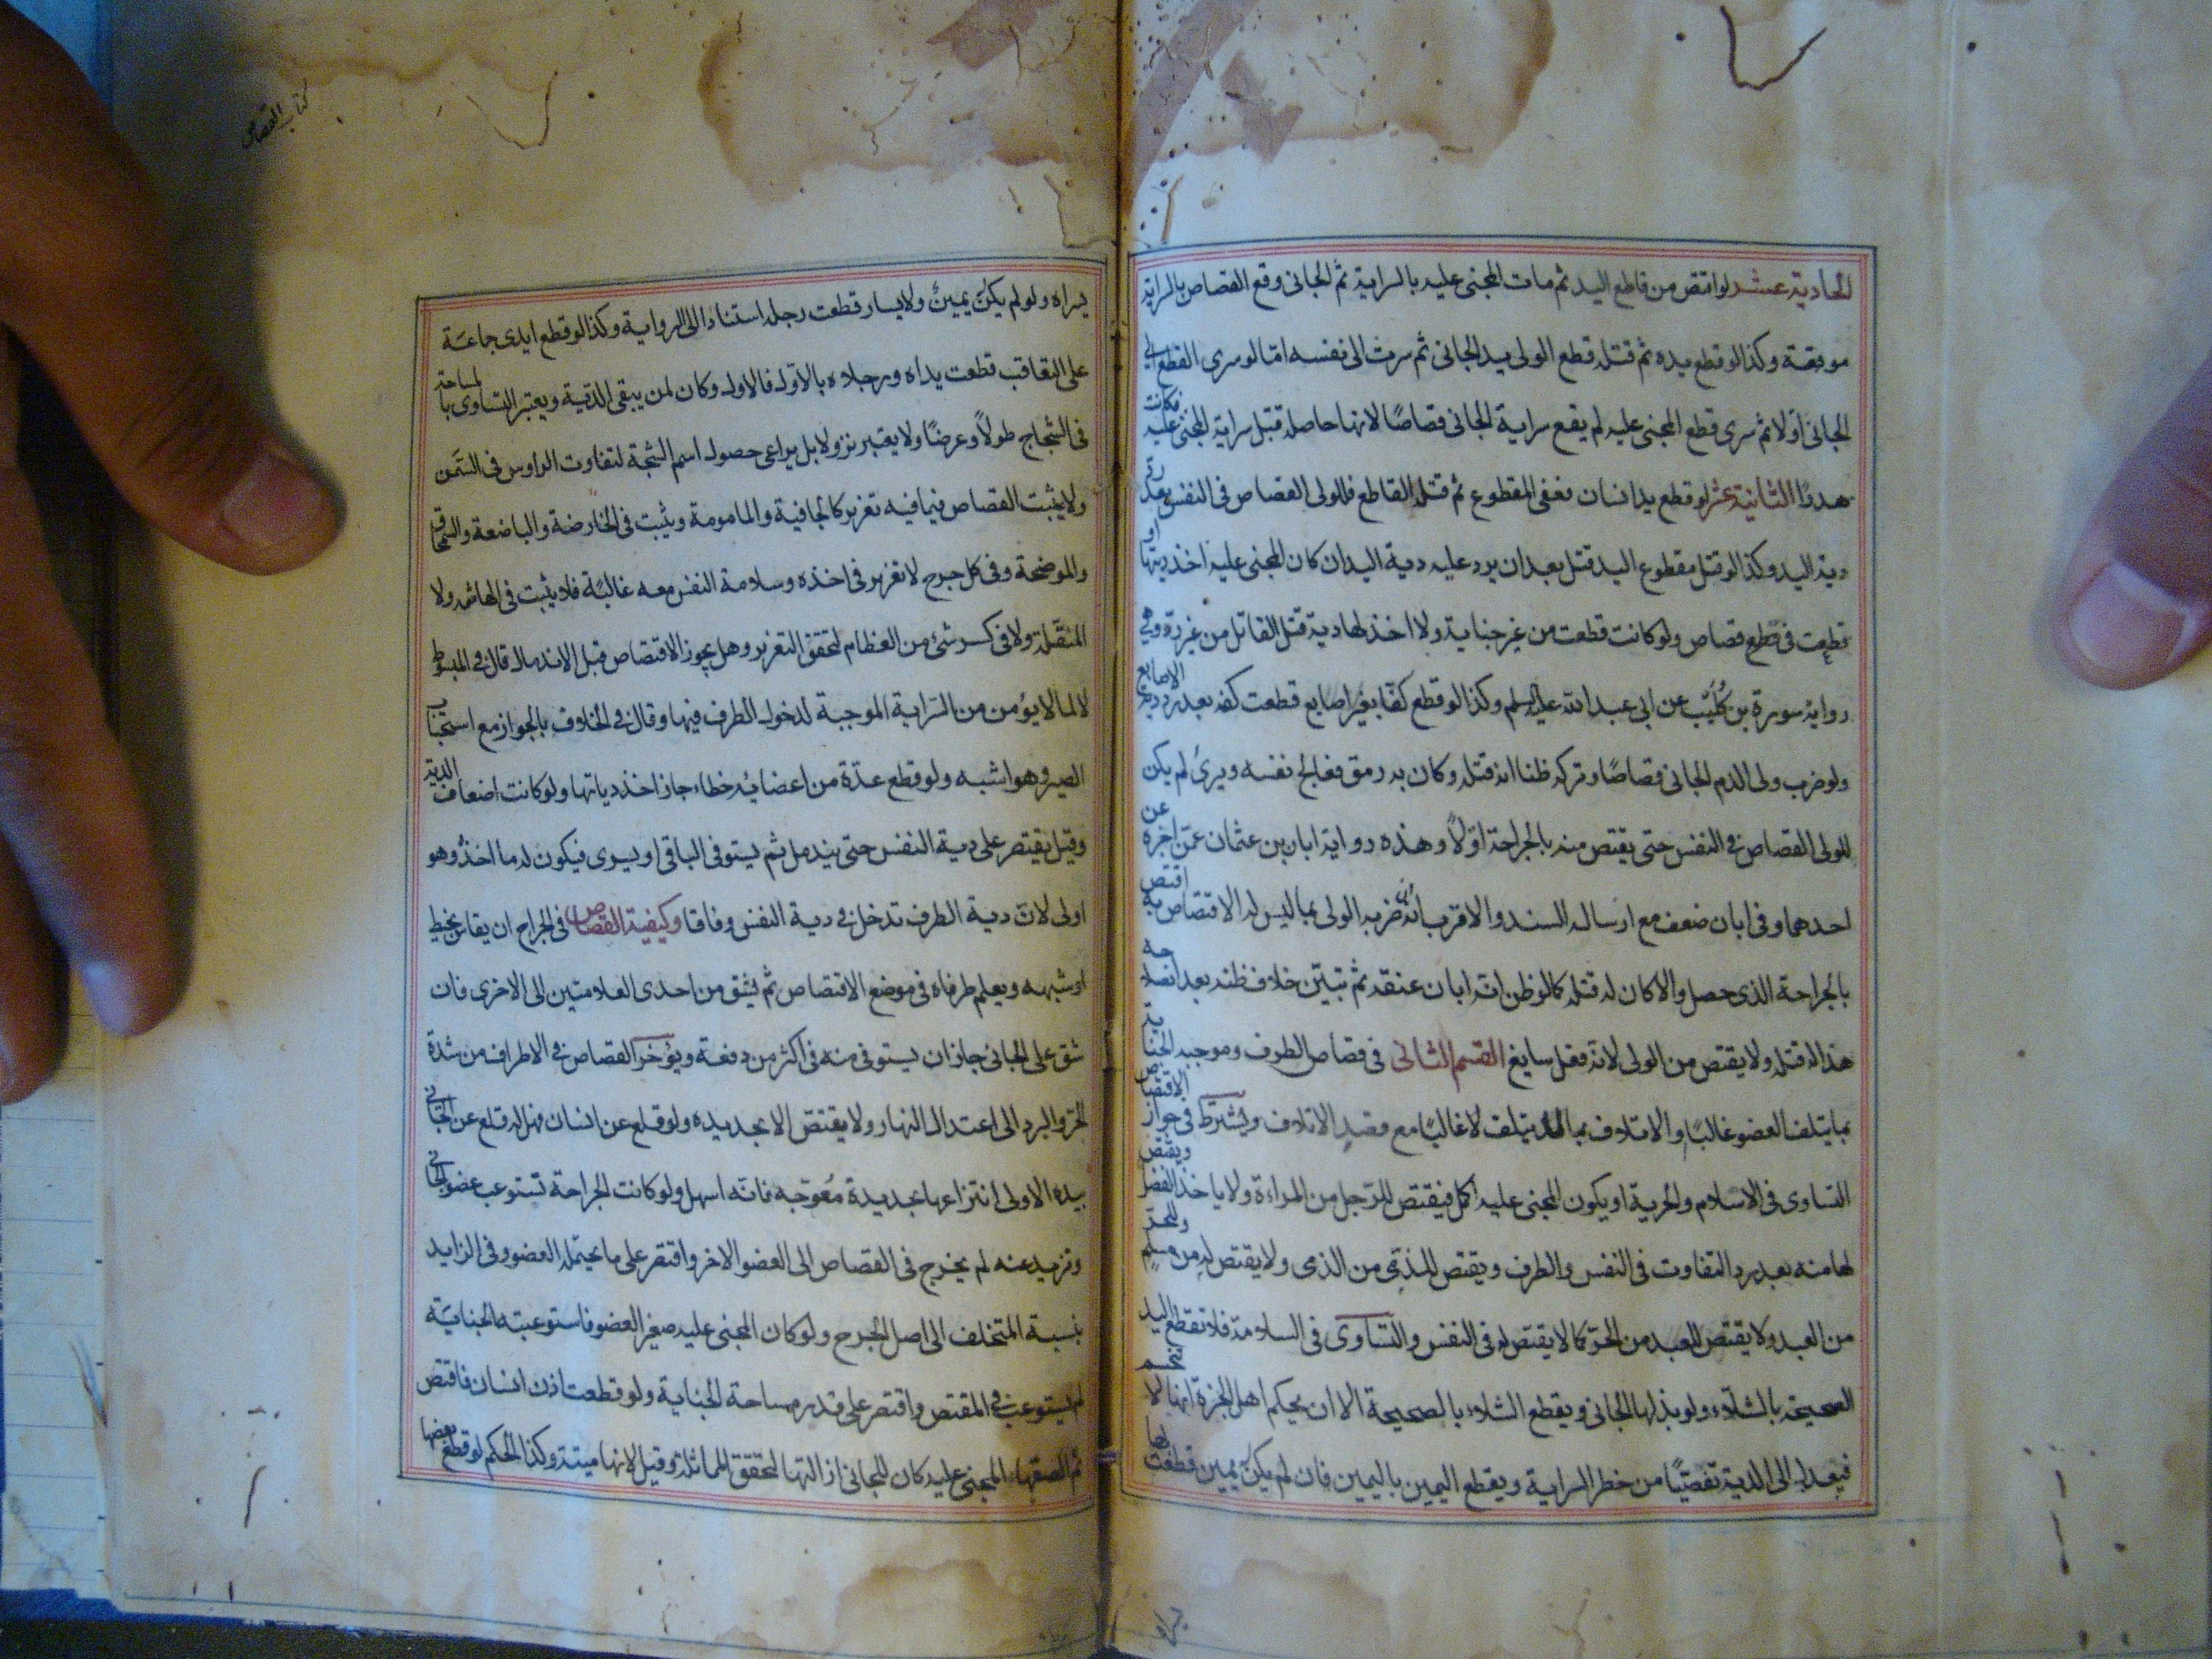 الحادية عشر لو اقتص من قاطع اليد ثم مات المجنى عليه بالسراية ثم الجانى وقع القصاص بالسراية
موقعة وكذا لو قطع يده ثم قتله قطع الولى يد الجانى ثم سرت الى نفسه امّا لو سرى القطع الى
الجانى اوّلا ثم سرى قطع المجنى عليه لم يقع سراية الجانى قصاصًا لانها حاصله قبل سراية المجنى عليه فكانت
هدرًا الثانية عشر لو قطع يد انسان فعفى المقطوع ثم قتله القاطع فللولى القصاص فى النفس بعد رد
دية اليد وكذا لو قتل مقطوع اليد قتل بعد ان يرد عليه دية اليد ان كان المجنى عليه اخذ ديتها او
قطعت فى قطع قصاص ولو كانت قطعت من غير جناية ولا اخذ لها دية قتل القاتل من غير رد وهى
رواية سورة بن كُليَب عن ابى عبد الله عليه السلم وكذا لو قطع كفّا بغير اصابع قطعت كفه بعد رد دية الاصابع
ولو ضرب ولى الدم الجانى قصاصًا وتركه ظنا انه قتله وكان به رمق فعالج نفسه وبرئ لم يكن
للولى القصاص فى النفس حتى يقتص منه بالجراحة اوّلاً وهذه رواية ابان بن عثمان عمّن اخبره عن
احدهما وفى ابان ضعف مع ارساله السند والاقرب انه ان ضربه الولى بما ليس له الاقتصاص به اقتص
بالجراحة الذى حصل والا كان له قتله كما لو ظن انه ابان عنقه ثم تبيّن خلاف ظنه بعد انصلاحه
هذا له قتله ولا يقتص من الولى لانه فعل سايغ القسم الثانى فى قصاص الطرف وموجبه الجناية
بما يتلف العضو غالبًا او الاتلاف بما قد يتلف لا غالبًا مع قصد الاتلاف ويشترط فى جواز الاقتصاص
التساوى فى الاسلام والحرية او يكون المجنى عليه اكمل فيقتص للرّجل من المراءة ولا ياخذ الفضل ويقتص
لها منه بعد رد التفاوت فى النفس والطرف ويقتص للذمّى من الذمى ولا يقتص له من مسلم وللحر
من العبد ولا يقتص للعبد من الحرّ كما لا يقتص له فى النفس والتساوى فى السلامة فلا تقطع اليد
الصحيحة بالشلاّء ولو بذلها الجانى ويقطع الشلاء بالصحيحة الا ان يحكم اهل الخبرة انها لا تنحسم
فيعدل الى الدية تفصّيًا من خطر السراية ويقطع اليمين باليمين فان لم يكن يمين قطعت لها
يسراه ولو لم يكن يمينٌ ولا يسار قطعت رجله استنادا الى الرواية وكذا لو قطع ايدى جماعة
على التعاقب قطعت يداه ورجلاه بالاوّل فالاول وكان لمن يبقى الدية ويعتبر التساوى بالمساحة
فى الشجاج طولاً وعرضًا ولا يعتبر نزولا بل يراعى حصول اسم الشجة لتفاوت الراوس فى السّمن
ولا يثبت القصاص فيما فيه تغرير كالجافية والمامومة ويثبت فى الخارضة والباضعة والسمحاق
والموضحة وفى كل جرح لا تغرير فى اخذه وسلامة النفس معه غالبًة فلا يثبت فى الهاشمه ولا
المنقّلة ولا فى كسر شئ من العظام لتحقق التغرير وهل يجوز الاقتصاص قبل الاندمال قال فى المبسوط
لا لما لا يؤمن من السّراية الموجبة لدخول الطرف فيها وقال فى الخلاف بالجواز مع استحباب
الصبر وهو اشبه ولو قطع عدّة من اعضائه خطاء جاز اخذ دياتها ولو كانت اضعاف الدية
وقيل يقتصر على دية النفس حتى يندمل ثم يستوفى الباقى او يسرى فيكون له ما اخذ وهو
اولى لانّ دية الطرف تدخل فى دية النفس وفاقا وكيفية القصاص فى الجراح ان يقاس بخيط
او شبهه ويعلم طرفاه فى موضع الاقتصاص ثم يشق من احدى العلامتين الى الاخرى فان
شق على الجانى جاز ان يستوفى منه فى اكثر من دفعة ويؤخر القصاص فى الاطراف من شدة
الحرّ والبرد الى اعتدال النهار ولا يقتصّ الا بحديده ولو قلع عن انسان فهل له قلع عن الجانى
بيده الاولى انتزاعها بحديدة مُعوّجه فانّه اسهل ولو كانت الجراحة تستوعب عضو الجانى
وتزيد عنه لم يخرج فى القصاص الى العضو الاخر واقتصر على ما يحتمله العضو وفى الزايد
بنسبة المتخلف الى اصل الجرح ولو كان المجنى عليه صغير العضو فاستوعبته الجناية
لم يستوعب فى المقتص واقتصر على قدر مساحة الجناية ولو قطعت اذن انسان فاقتص
ثم الصقها المجنى عليه كان للجانى ازالتها لتحقق المماثلة وقيل لانها ميتة وكذا الحكم لو قطع بعضها
كتاب القصاص